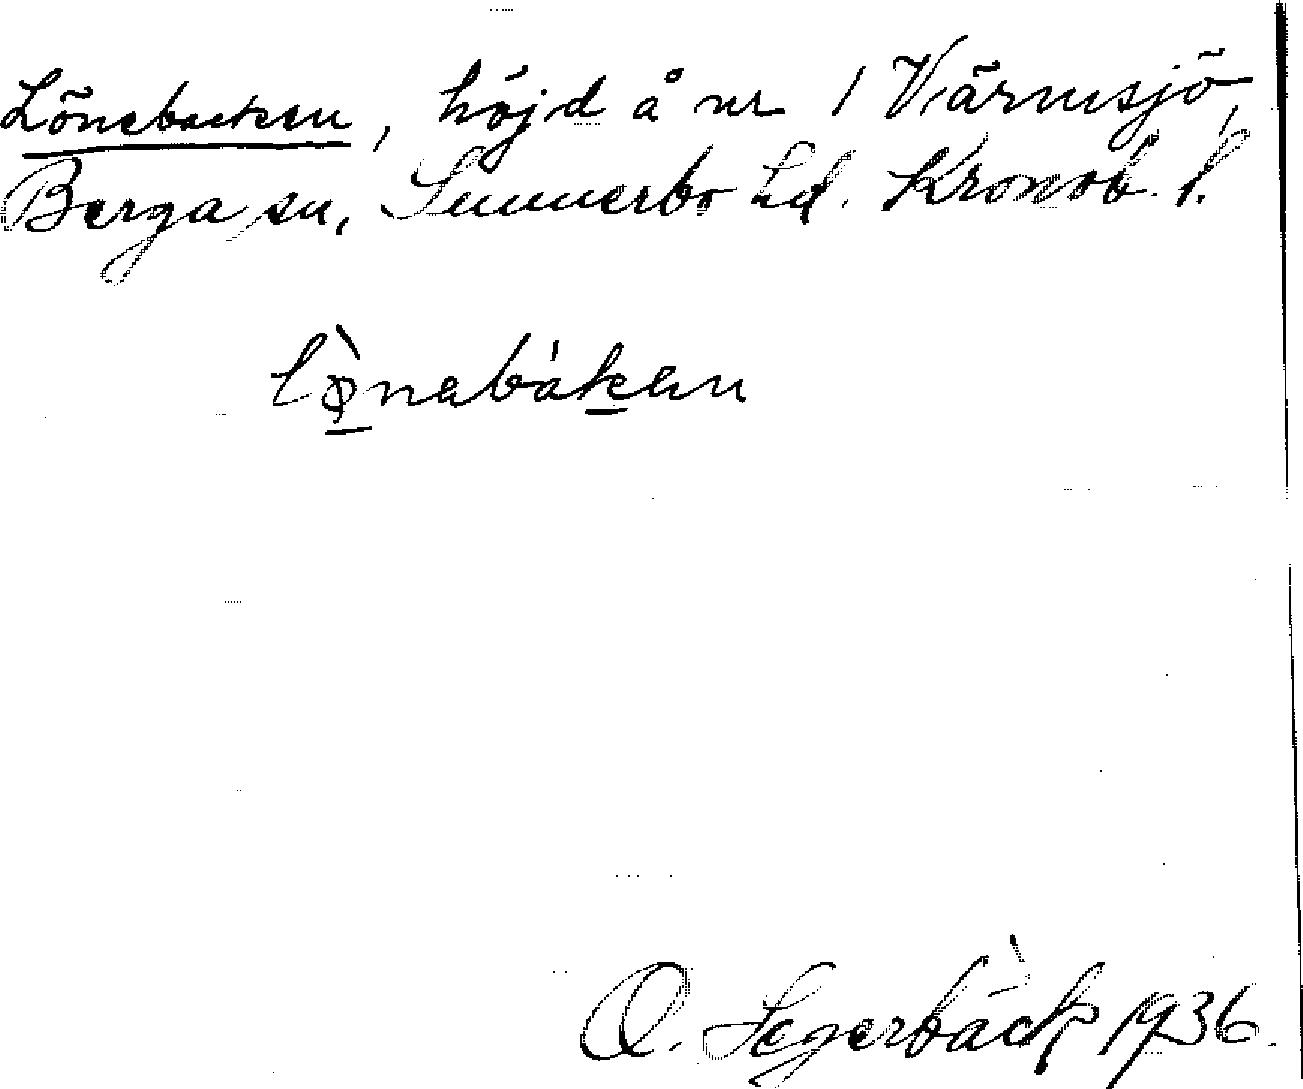 Lönebacken, höjd å nr 1 Värmsjö,
Berga sn, Sunnerbo hd. Kronob. l.
lø̀nebáken
O. Segerbäck 1936.